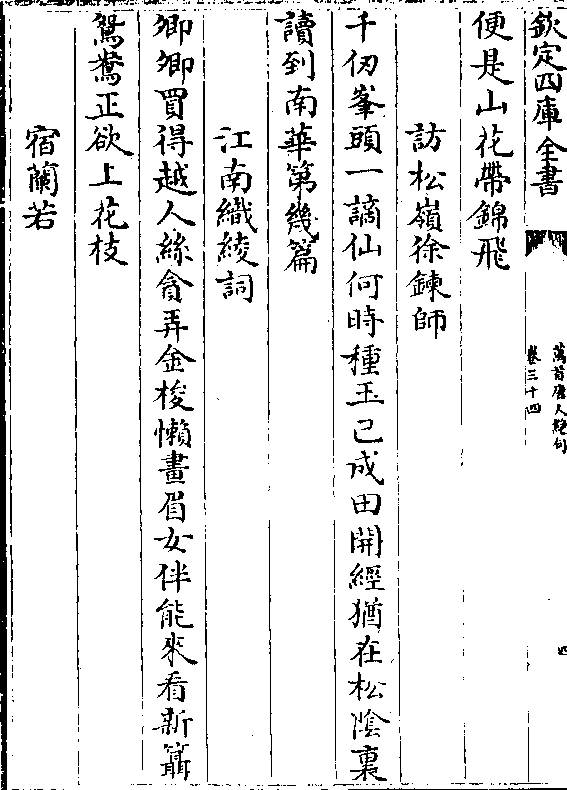 欽定四庫全書
萬首唐人絶句
卷三十四
四
便是山花帶錦飛
訪松嶺徐鍊師
千仞峯頭一謫仙何時種玉已成田開經猶在松陰裏
讀到南華第幾篇
江南織綾詞
卿卿買得越人絲貪弄金梭懶畫眉女伴能來看新𥲤
鴛鴦正欲上花枝
宿蘭若